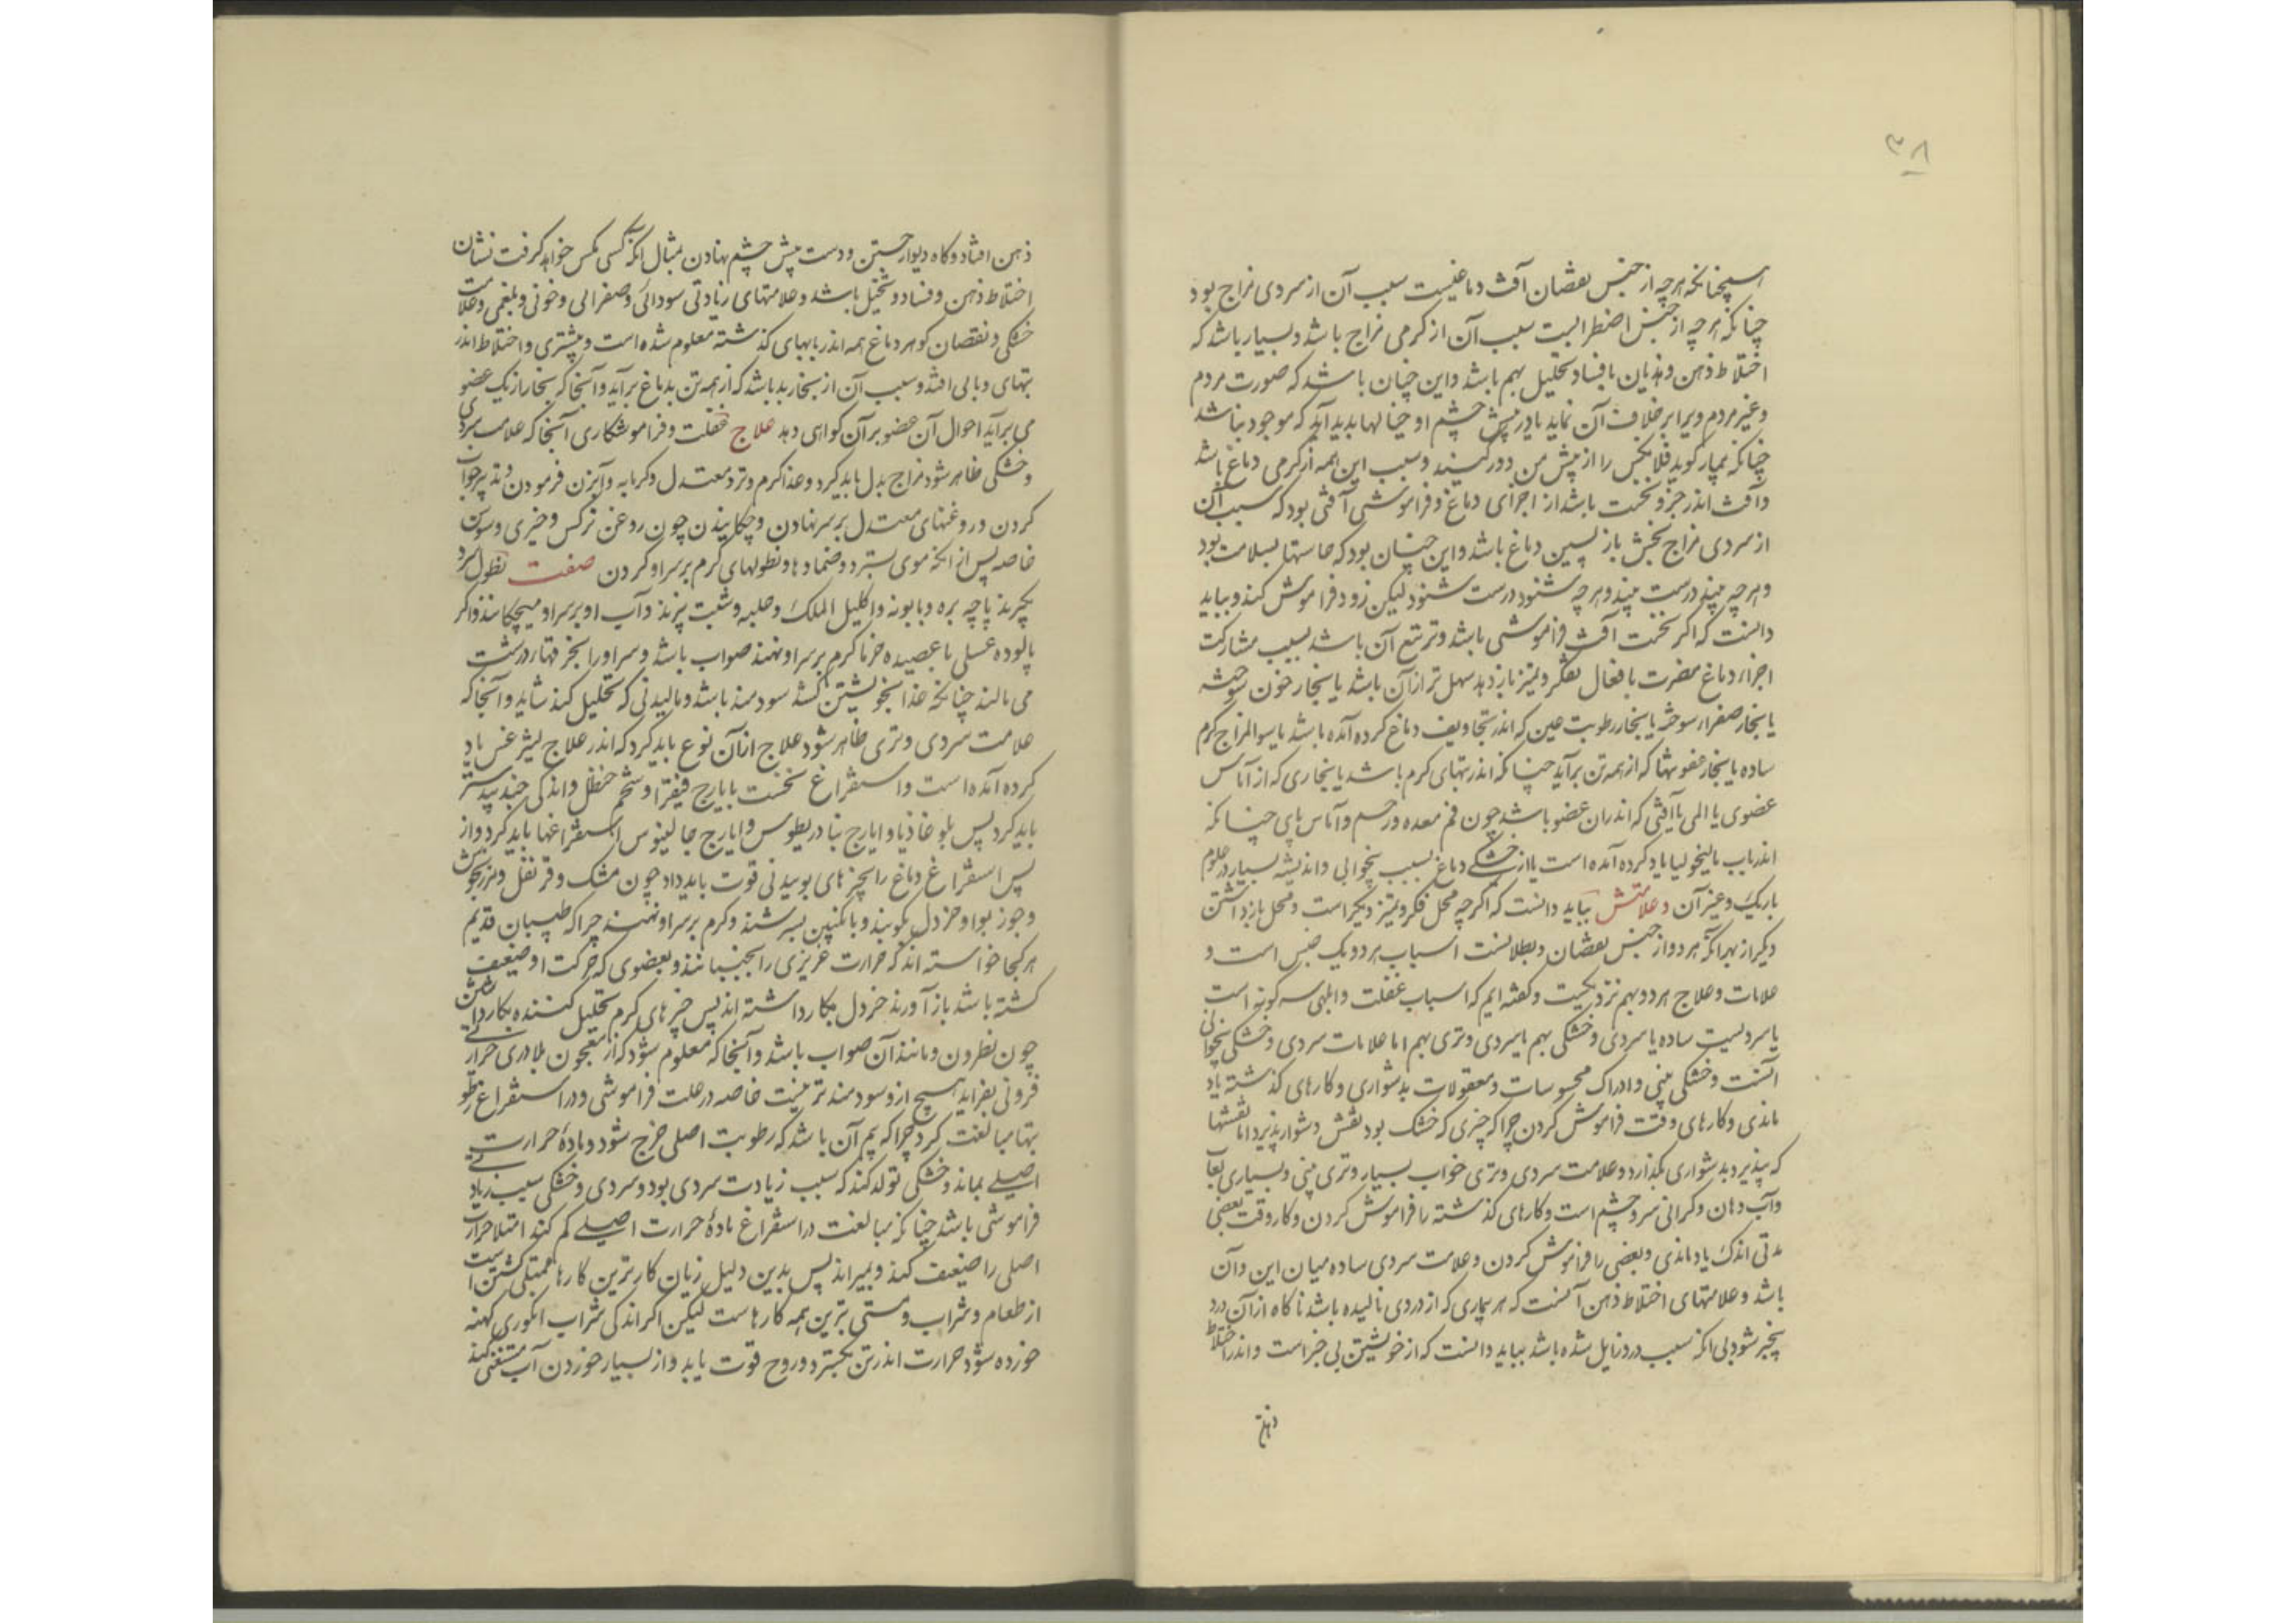 ۳۸
همچنانکه هرچه از جنس نقصان آفت دماغیست سبب آن از سردی مزاج بود
چنانکه هرچه از جنس اضطرابست سبب آن از کرمی مزاج باشد و بسیار باشد که
اختلاط ذهن و هذیان با فساد تخیل بهم باشد و این چنان باشد که صورت مردم
و غیر مردم ویرا بر خلاف آن نماید یا در پیش چشم او خیالها بدید آید که موجود نباشد
چنانکه بیمار کوید فلان کس را از پیش من دور کنید و سبب این همه از کرمی دماغ باشد
و آفت اندر جزو نخست باشد از اجزای دماغ و فراموشی آفتی بود که سبب آن
از سردی مزاج بخش باز پسین دماغ باشد و این چنان بود که حاستها بسلامت بود
و هرچه بیند درست بیند و هرچه شنود درست شنود لیکن زود فراموش کند و بباید
دانست که اکر نخست آفت فراموشی باشد و تبع آن باشد بسبب مشارکت
اجزاء دماغ مضرت بافعال تفکر و تمیز باز دهد سهل تر از آن باشد یا بخار خون سوخته
یا بخار صفراء سوخته یا بخار رطوبت عفن که اندر تجاویف دماغ کرد آمده باشد یا سوالمزاج کرم
ساده یا بخار عفونتها که از همه تن برآید چنانکه اندر تبهای کرم باشد یا بخاری که از آماس
عضوی یا المی یا آفتی که اندران عضو باشد چون فم معده و رحم و آماس پای چنانکه
اندر باب مالیخولیا یاد کرده آمده است یا از خشکی دماغ بسبب بیخوابی و اندیشه بسیار در علوم
باریک و غیر آن و علامتش بباید دانست که اکرچه محل فکر و تمیز دیکر است و محل باز داشتن
دیکر از بهر آنکه هر دو از جنس نقصان و بطلانست اسباب هر دو یک جنس است و
علامات و علاج هر دو بهم نزدیکست و کفته ایم که اسباب غفلت و ابلهی سه کونه است
یا سردیست ساده یا سردی و خشکی بهم یا سردی و تری بهم اما علامات سردی و خشکی بیخوابی
آنست و خشکی بینی و ادراک محسوسات و معقولات بدشواری و کارهای کذشته یاد
ماندی و کارهای وقت فراموش کردن چرا که چیزی که خشک بود نقش دشوار پذیرد اما نقشها
که پذیرد بدشواری بکذارد و علامت سردی و تری خواب بسیار و تری بینی و بسیاری لعاب
و آب دهان و کرانی سر و چشم است و کارهای کذشته را فراموش کردن و کار وقت بعضی
مدتی اندک یاد ماندی و بعضی را فراموش کردن و علامت سردی ساده میان این و آن
باشد و علامتهای اختلاط ذهن آنست که هر بیماری که از دردی نالیده باشد ناکاه از آن درد
بیخبر شود بی آنکه سبب درد زایل شده باشد بباید دانست که از خویشتن بی خبر است و اندر اختلاط
ذهن
ذهن افتاد و کاه دیوار جستن و دست پیش چشم نهادن بمثال آنکه کسی مکس خواهد کرفت نشان
اختلاط ذهن و فساد و تخیل باشد و علامتهای زیادتی سودائی و صفرائی و خونی و بلغمی و علامت
خشکی و نقصان کوهر دماغ همه اندر بابهای کذشته معلوم شده است و بیشتری و اختلاط اندر
تبهای وبایی افتد و سبب آن از بخار بد باشد که از همه تن بدماغ برآید و آنجا که بخار از یک عضو
می برآید احوال آن عضو بر آن کواهی دهد علاج غفلت و فراموشکاری آنجا که علامت سردی
و خشکی ظاهر شود مزاج بدل باید کرد و غذا کرم و تر و معتدل و کرمابه و آبزن فرمودن و تدبیر خواب
کردن و روغنهای معتدل بر سر نهادن و چکانیدن چون روغن نرکس و خیری و سوسن
خاصه پس از آنکه موی بسترد و ضمادها و نطولهای کرم بر سر او کردن صفت نطول سرد
بکیرند پاچه بره و بابونه و اکلیل الملک و حلبه و شبت بپزند و آب او بر سر او میچکانند و اکر
پالوده عسلی یا عصیده خرما کرم بر سر او نهند صواب باشد و سر او را بخرقهاء درشت
می مالند چنانکه غذا بخویشتن کشد سودمند باشد و مالیدنی که تحلیل کند نشاید و آنجا که
علامت سردی و تری ظاهر شود علاج از آن نوع باید کرد که اندر علاج لیثرغس یاد
کرده آمده است و استفراغ نخست بایارج فیقرا و شحم حنظل و اندکی جندبیدستر
باید کرد پس بلوغاذیا و ایارج بنادریطوس و ایارج جالینوس استفراغها باید کرد و از
پس استفراغ دماغ را بچیزهای بوییدنی قوت باید داد چون مشک و قرنفل و مرزنجوش
و جوز بوا و خردل بکوبند و بانکبین بسرشند و کرم بر سر او نهند چرا که طبیبان قدیم
هر کجا خواسته اند که حرارت غریزی را بجنبانند و بعضوی که حرکت او ضعیف
کشته باشد باز آورند خردل بکار داشته اند پس چیزهای کرم تحلیل کننده بکار داشتن
چون نطرون و مانند آن صواب باشد و آنجا که معلوم شود که از معجون بلادری حرارت
فزونی نفزاید هیچ ازو سودمند تر نیست خاصه در علت فراموشی و در استفراغ رطو
بتها مبالغت کرد چرا که بیم آن باشد که رطوبت اصلی خرج شود و مادهٔ حرارت
اصلی بماند و خشکی تولد کند که سبب زیادت سردی بود و سردی و خشکی سبب زیادتی
فراموشی باشد چنانکه مبالغت در استفراغ مادهٔ حرارت اصلی کم کند امتلا حرارت
اصلی را ضعیف کند و بمیراند پس بدین دلیل زیان کارترین کارها ممتلی کشتن است
از طعام و شراب و مستی بترین همه کارهاست لیکن اکر اندکی شراب انکوری کهنه
خورده شود حرارت اندر تن بکسترد و روح قوت یابد و از بسیار خوردن آب مستغنی کند